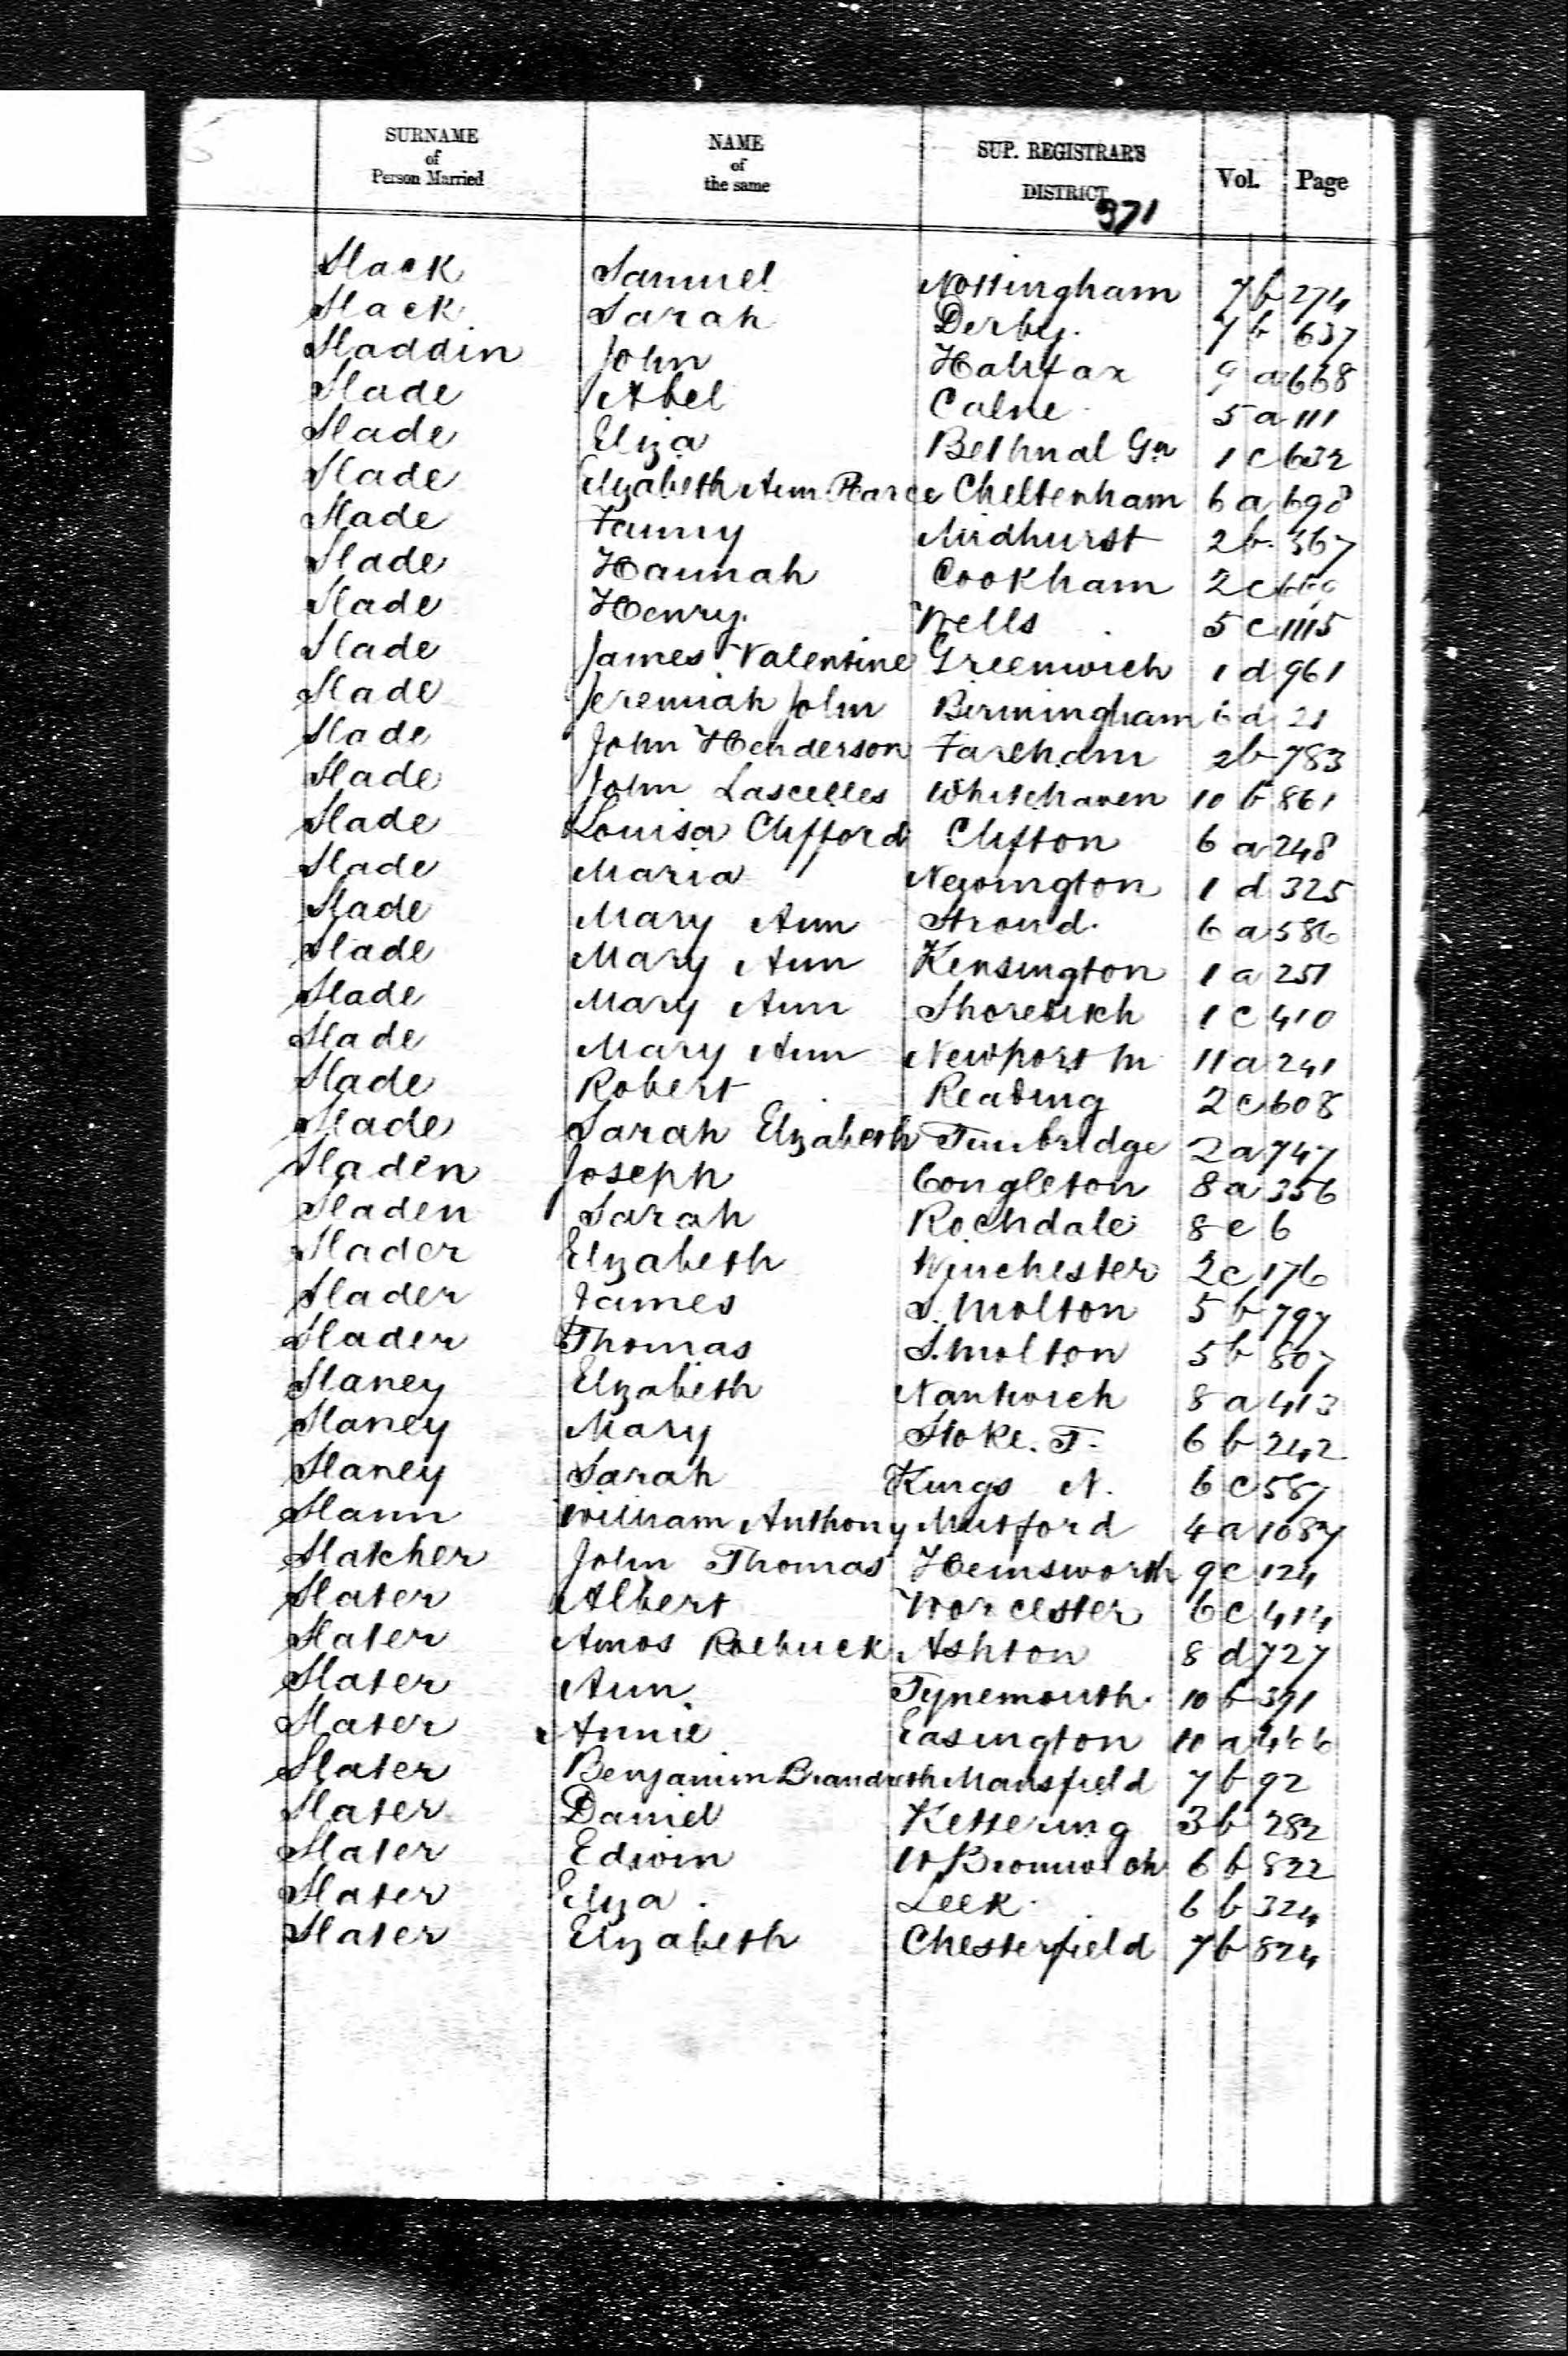 SURNAME of Person Married NAME of the same SUP. REGISTRAR'S DISTRICT Vol. Page
371
Slack Samuel Nottingham 7 b 274
Slack Sarah Derby 7 b 637
Sladdin John Halifax 9 a 668
Slade Abel Calne 5 a 111
Slade Eliza Bethnal Gn 1 c 632
Slade Elizabeth Ann Pearce Cheltenham 6 a 698
Slade Fanny Midhurst 2 b 367
Slade Hannah Cookham 2 c
Slade Henry Wells 5 c 1115
Slade James Valentine Greenwich 1 d 961
Slade Jeremiah John Birmingham 6 d 21
Slade John Henderson Fareham 2 b 783
Slade John Lascelles Whitehaven 10 b 861
Slade Louisa Clifford Clifton 6 a 248
Slade Maria Newington 1 d 325
Slade Mary Ann Stroud 6 a 586
Slade Mary Ann Kensington 1 a 251
Slade Mary Ann Shoreditch 1 c 410
Slade Mary Ann Newport M 11 a 241
Slade Robert Reading 2 c 608
Slade Sarah Elizabeth Tunbridge 2 a 747
Sladen Joseph Congleton 8 a 356
Sladen Sarah Rochdale 8 e 6
Slader Elizabeth Winchester 2 c 176
Slader James S. Molton 5 b 797
Slader Thomas S. Molton 5 b 807
Slaney Elizabeth Nantwich 8 a 413
Slaney Mary Stoke. T. 6 b 242
Slaney Sarah Kings N. 6 c 587
Slann William Anthony Mutford 4 a 1087
Slatcher John Thomas Hemsworth 9 c 124
Slater Albert Worcester 6 c 414
Slater Amos Roebuck Ashton 8 d 727
Slater Ann Tynemouth 10 b 391
Slater Annie Easington 10 a 466
Slater Benjamin Brandreth Mansfield 7 b 92
Slater Daniel Kettering 3 b 282
Slater Edwin W Bromwich 6 b 822
Slater Eliza Leek 6 b 324
Slater Elizabeth Chesterfield 7 b 824